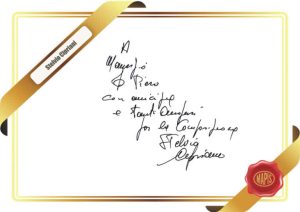 Stelvio Cipriani
A
Piero
con amicizia
e tanti auguri
per la
Stelvio
Cipriani
MAPIS